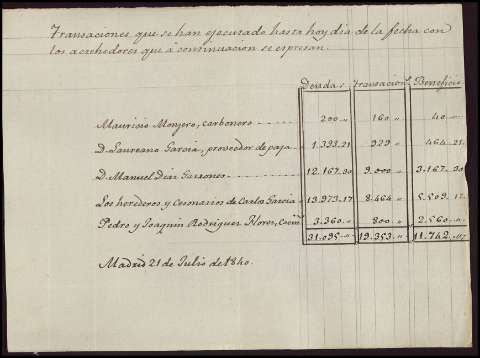 Transaciones que se han ejecutado hasta hoy dia de la fecha con
los acrehedores que á continuacion se espresan.
Deudas. Transacion.s Beneficio
Mauricio Monjero, carbonero 200 „ 160 „ 40 „
D. Laureano Garcia, proveedor de paja 1.393.21 929 „ 464.21
D. Manuel Diaz Garzones 12.167.30 9.000 „ 3.167.30
Los herederos y Cesonarios de Carlos Garcia 13.973.17 8.464 „ 5.509.17
Pedro y Joaquin Rodriguez Flores, 3.360 „ 800 „ 2.560 „
31.095 „ 19.353 „ 11.742
Madrid 21 de Julio de 1840.